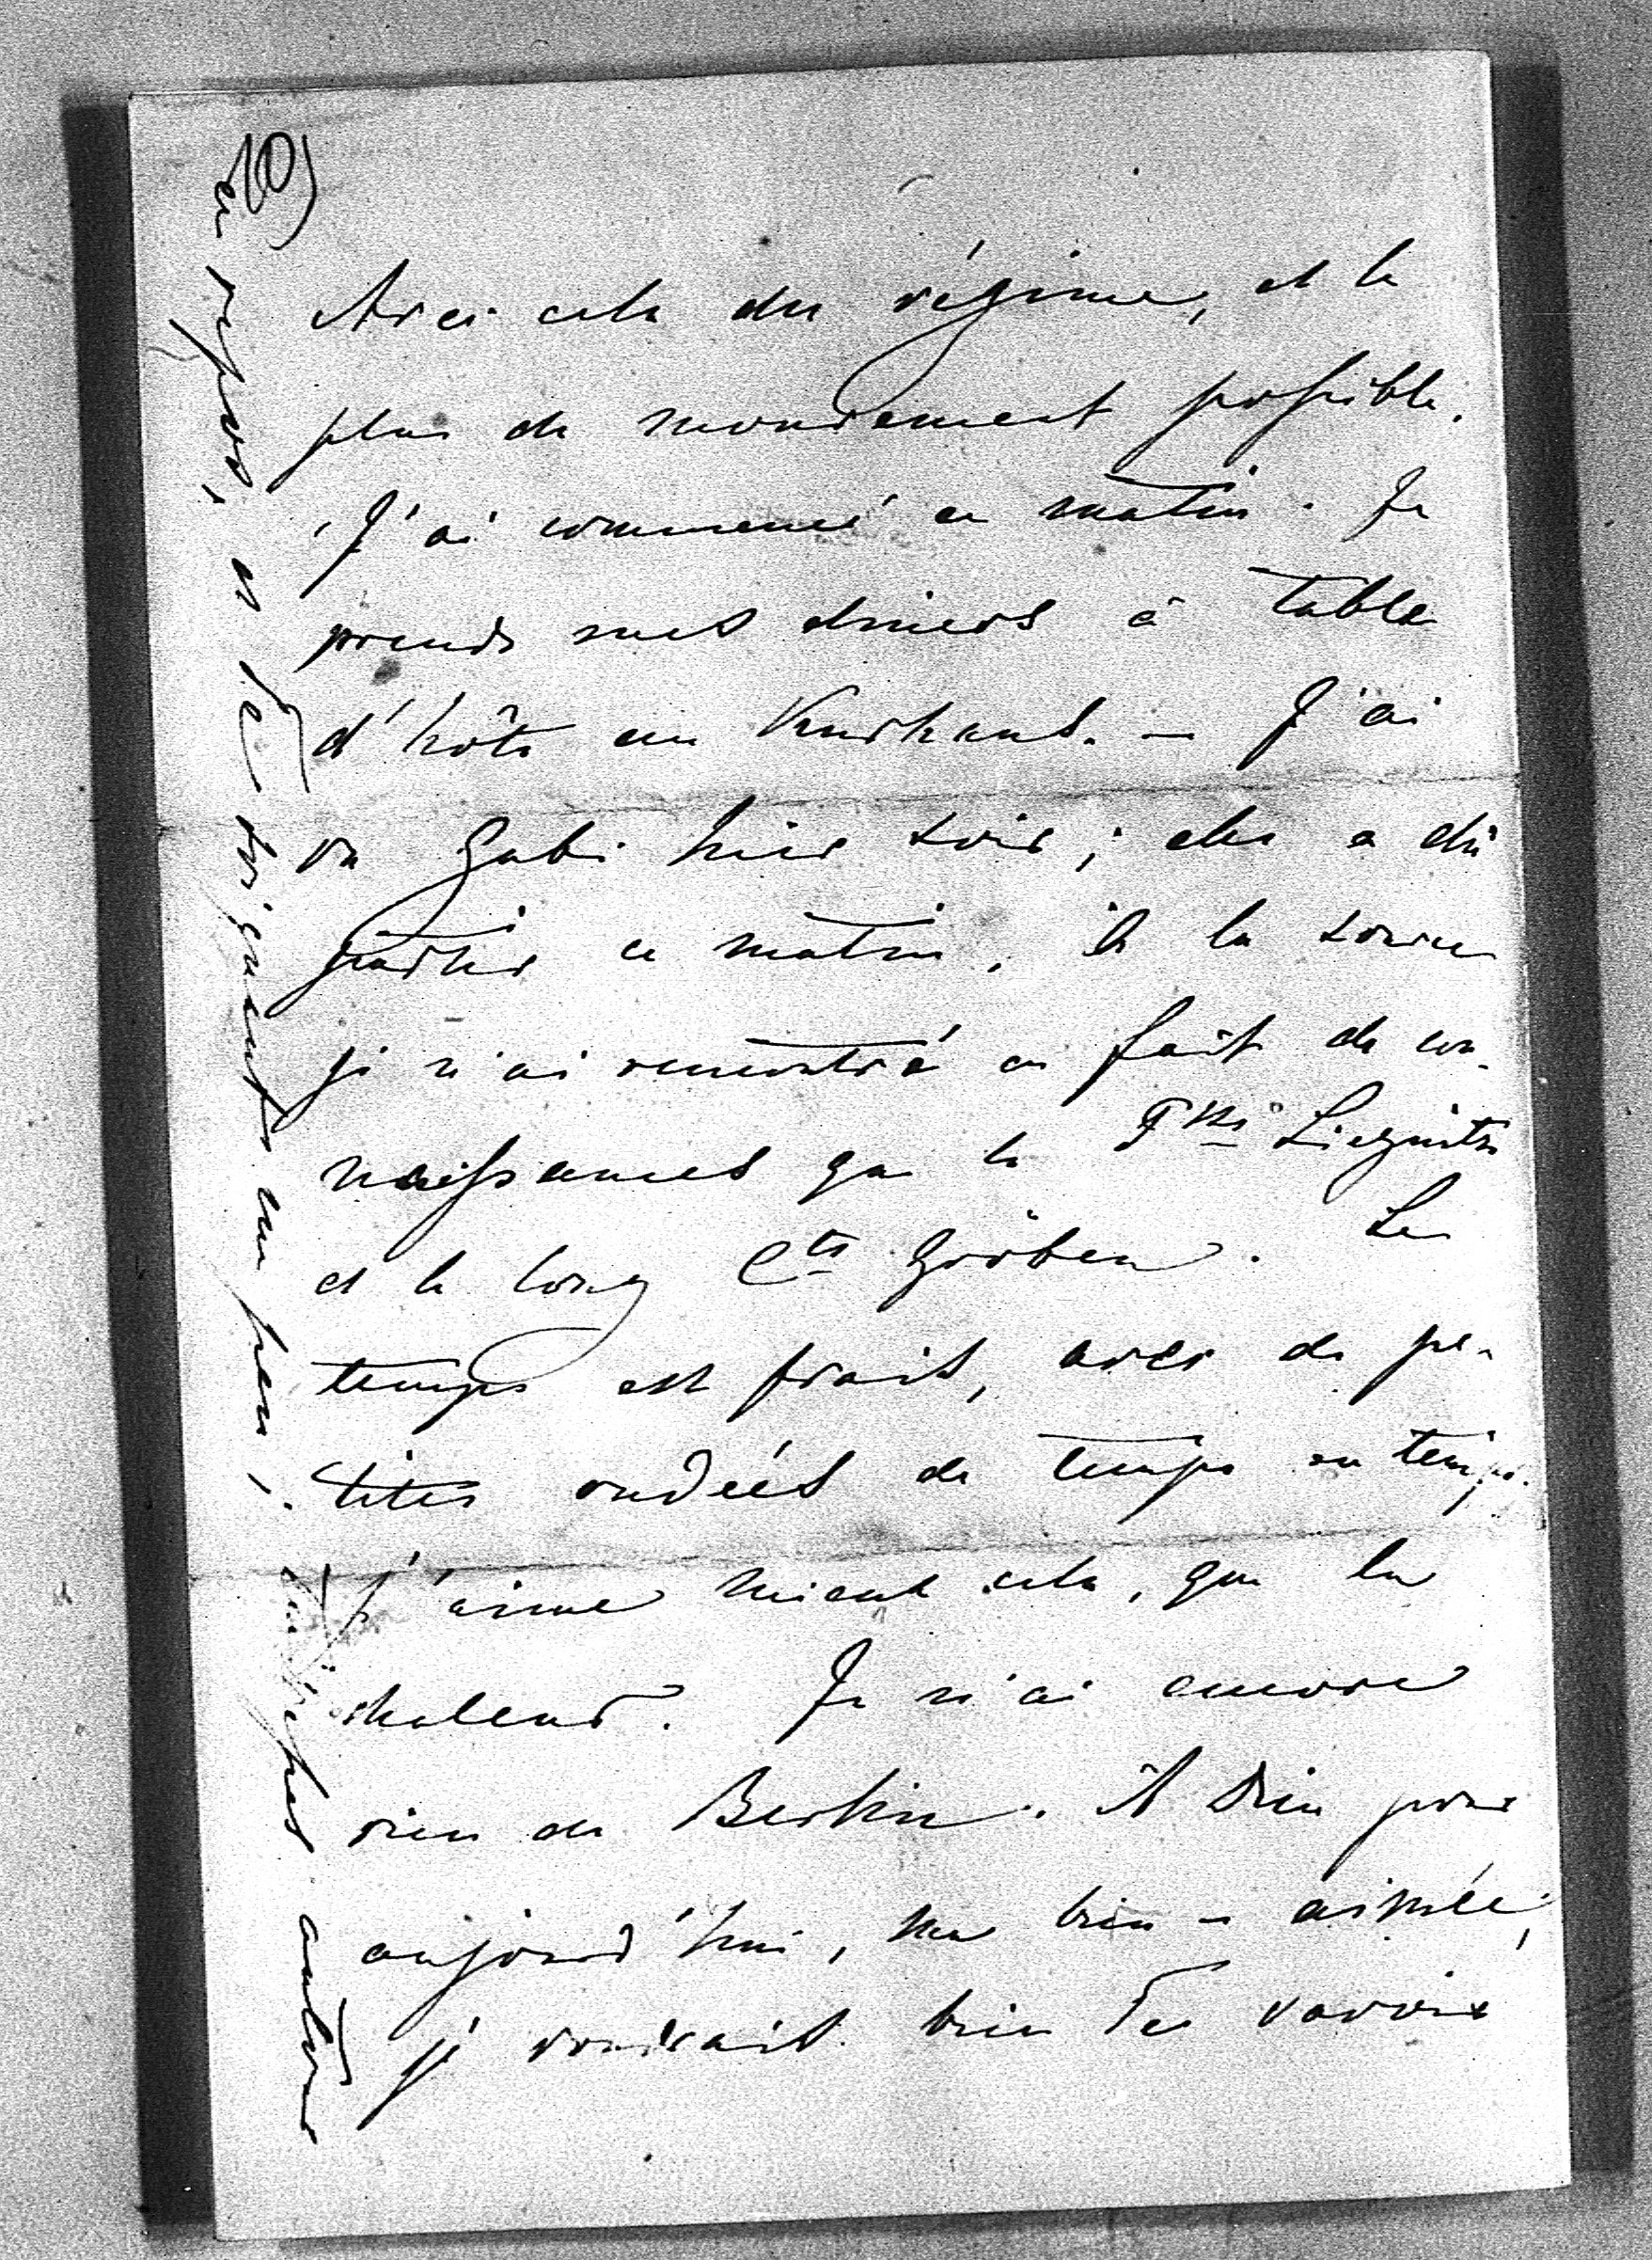 10)
Avec cela du régime, et le
plus de mouvement possible.
J'ai commencé ce matin. Je
prends mes diners à table
d'hôte au Kurhaus. – J'ai
vu Gabi hier soir; elle a dû
partir ce matin. À la source
je n'ai rencontré en fait de con-
naissances que la Fsse Liegnitz
et le long Cte Gröben. Le
temps est frais, avec de pe-
tites ondées de temps en temps.
J'aime mieux cela, que la
chaleur. Je n'ai encore
rien de Berlin. A Dieu pour
aujourd'hui, ma bien-aimée,
je voudrais bien Te savoir
en repos, et Te soignant un peu.
autre